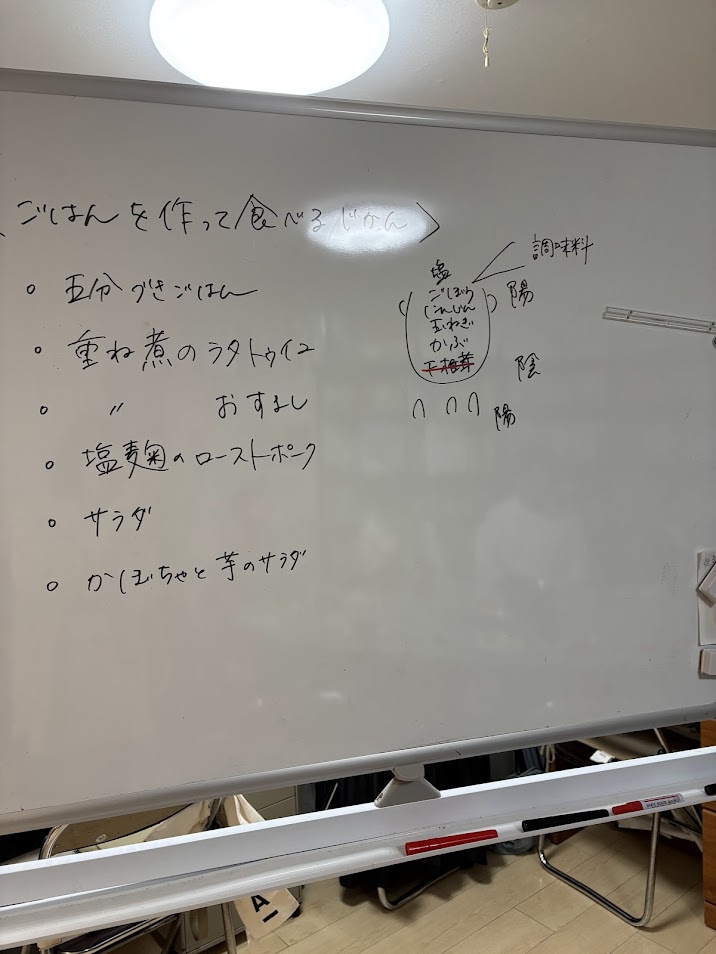 〈ごはんを作って食べるじかん〉
○ 五分づきごはん
○ 重ね煮のラタトゥイユ
○ 〃 おすまし
○ 塩麹のローストポーク
○ サラダ
○ かぼちゃと芋のサラダ
調味料
塩
ごぼう
にんじん
玉ねぎ
かぶ
陽
陰
陽